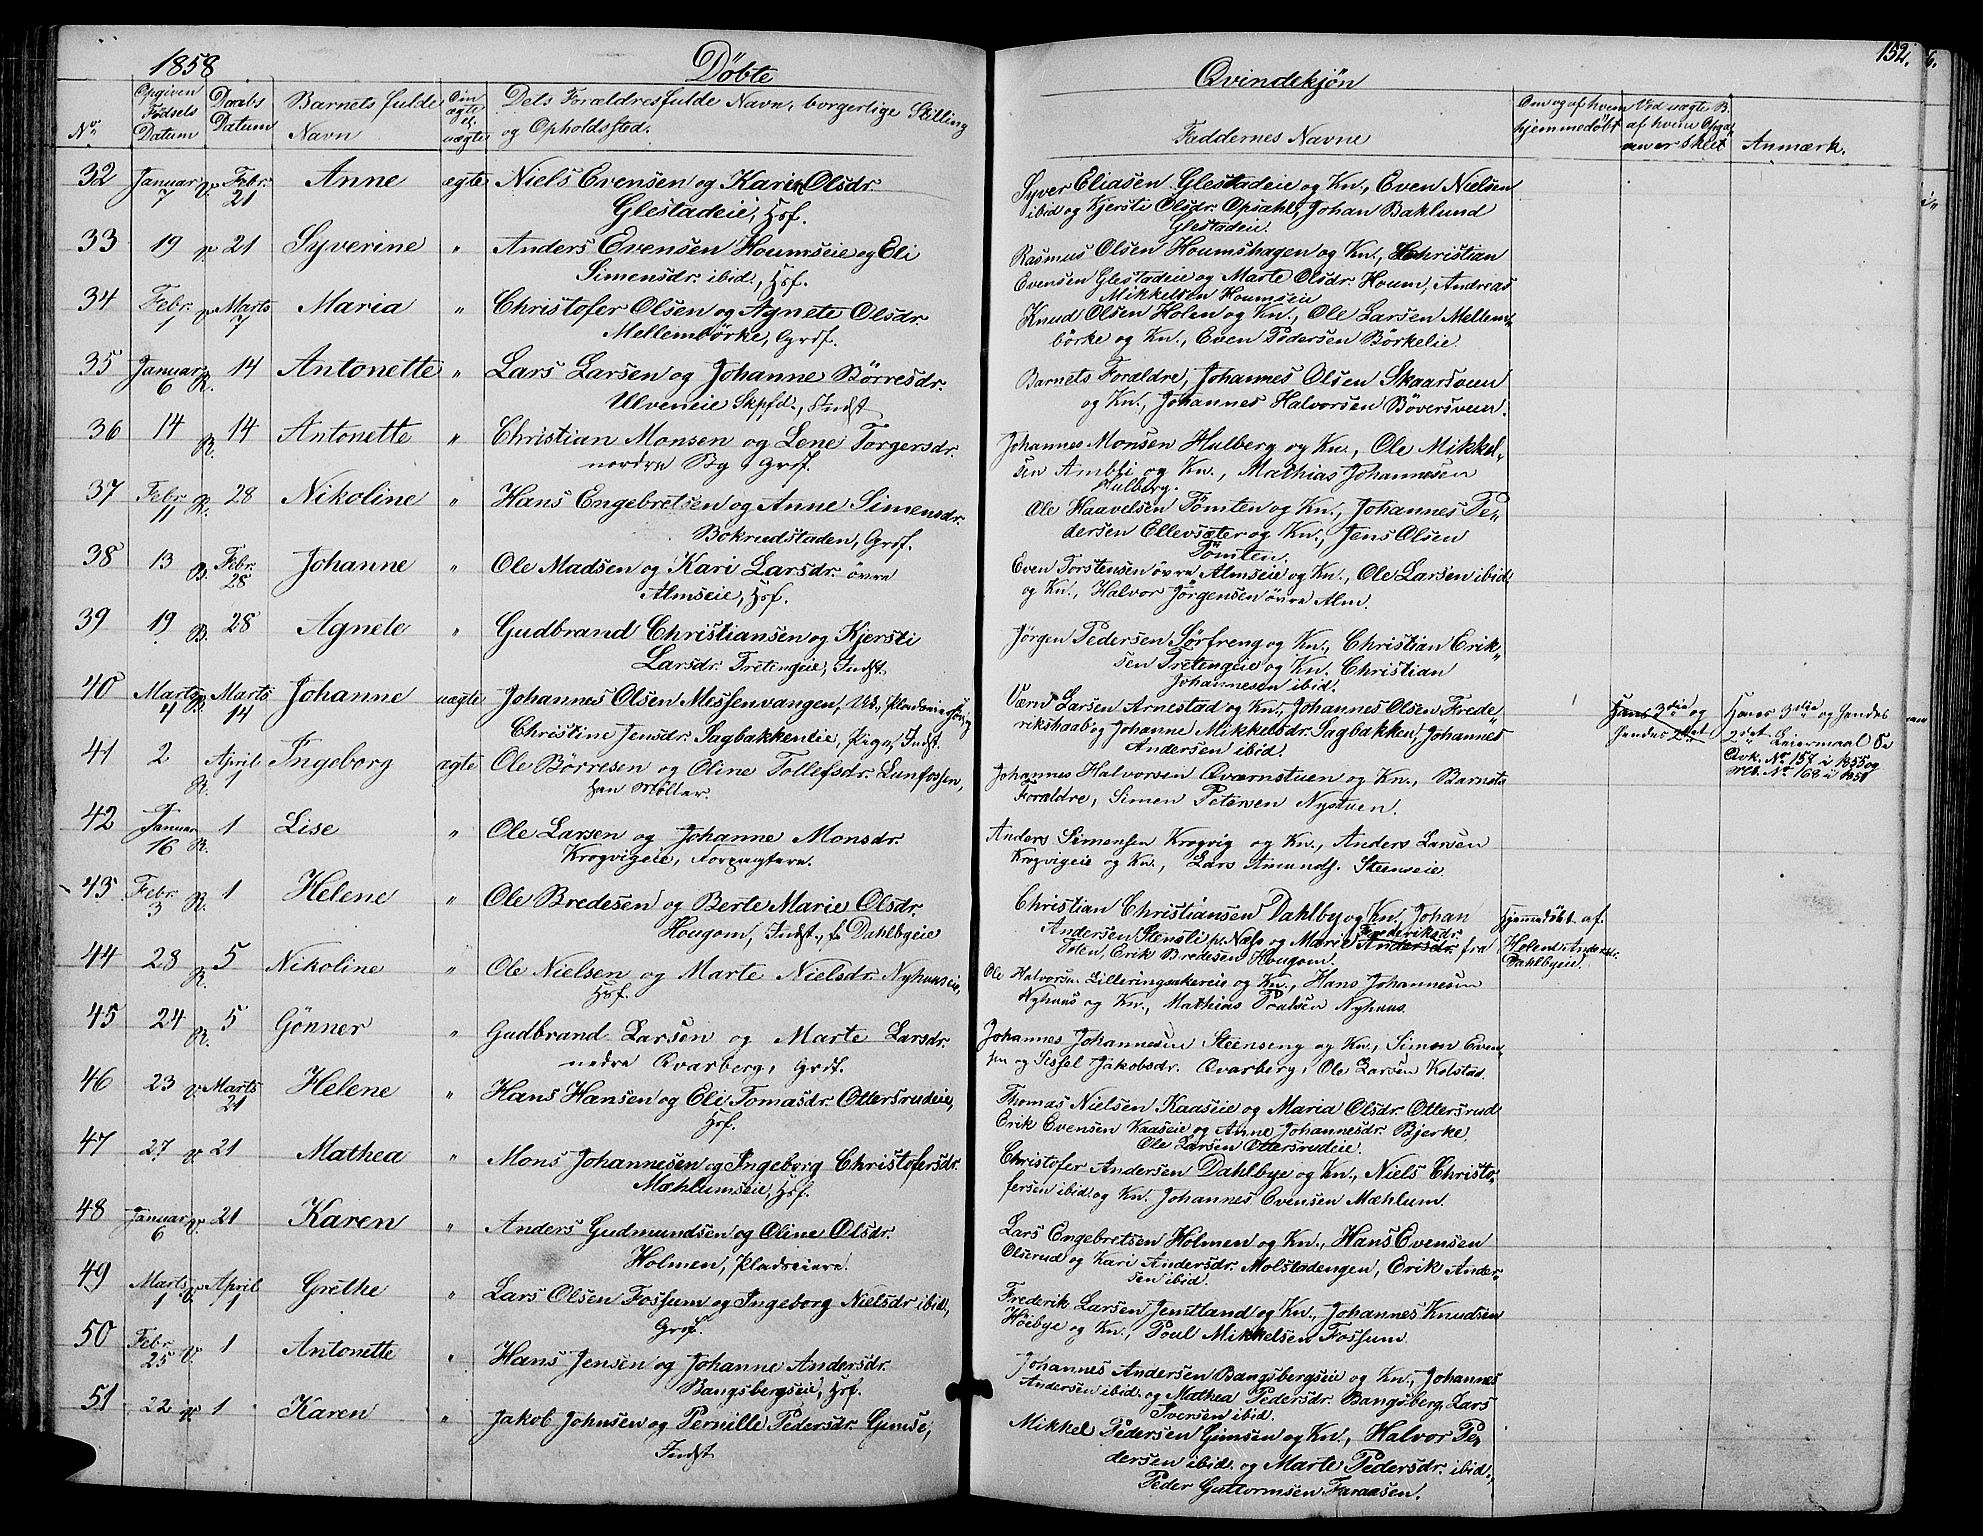 1858
Döbte
No.
Opgiven
Födsels
Datum
Daabs
Datum
Barnets fulde
Navn
Om
ægte
el.
uægte
Dets Forældres fulde Navn, borgerlige Stilling
og Opholdssted.
32 Januar 7 V. Febr. 21 Anne ægte Niels Evensen og Kari Olsdr.
Glestadeie, Hsf.
33 19 V. 21 Syverine " Anders Evensen Houmseie og Eli
Simensdr. ibid., Hsf.
34 Febr. 1 V. Marts 7 Maria " Christofer Olsen og Agnete Olsdr.
Mellembörke, Grdf.
35 Januar 6 R. 14 Antonette " Lars Larsen og Johanne Börresdr.
Ulveneie Skpfd., Indst
36 14 R. 14 Antonette " Christian Monsen og Lene Torgersdr.
nordre By, Grdf.
37 Febr. 11 R. 28 Nikoline " Hans Engebretsen og Anne Simensdr.
Bokrudstaden, Grdf.
38 13 B. Febr. 28 Johanne " Ole Madsen og Kari Larsdr. övre
Almseie, Hsf.
39 19 B. 28 Agnete " Gudbrand Christiansen og Kjersti
Larsdr. Tretengeie, Indst.
40 Marts 4 B. Marts 14 Johanne uægte Johannes Olsen Messenvangen, Ud.,
Christine Jensdr. Sagbakkenleie, Pige, Indst.
41 2 R. April 1 Ingeborg ægte Ole Börresen og Oline Tollefsdr. Lunfossen,
han Möller.
42 Januar 16 R. 1 Lise " Ole Larsen og Johanne Monsdr.
Krogvigeie, Forpagtere.
43 Febr. 3 R. 1 Helene " Ole Bredesen og Berte Marie Olsdr.
Hougom, Indst., f. Dahlbyeie
44 28 R. 5 Nikoline " Ole Nielsen og Marte Nielsdr. Nyhuuseie,
Hsf.
45 24 R. 5 Gönner " Gudbrand Larsen og Marte Larsdr.
nedre Qvarberg, Grdf.
46 23 V. Marts 21 Helene " Hans Hansen og Eli Tomasdr. Ottersrudeie,
Hsf.
47 27 V. 21 Mathea " Mons Johannesen og Ingeborg Christofersdr.
Mæhlumseie, Hsf.
48 Januar 6 V. 21 Karen " Anders Gudmundsen og Oline Olsdr.
Holmen, Pladseiere.
49 Marts 1 V. April 1 Grethe " Lars Olsen Fossum og Ingeborg Nielsdr ibid,
Grdf.
50 Febr. 25 V. 1 Antonette " Hans Jensen og Johanne Andersdr.
Bangsbergseie, Hsf.
51 22 V. 1 Karen " Jakob Johnsen og Pernille Pedersdr. Gimse,
Indst
Qvindekjön
152.
6.
Faddernes Navne
Om og af hvem
hjemmedöbt
Ved uægte B.
af hvem Opgi-
ven er skeet
Anmærk.
Syver Eliasen Glestadeie og Kn., Even Nielsen
ibid og Kjersti Olsdr. Opsahl, Johan Baklund
Glestadeie.
Rasmus Olsen Houmshagen og Kn., Christian
Evensen Glestadeie og Marte Olsdr. Houm, Andreas
Mikkelsen Houmseie
Knud Olsen Holen og Kn., Ole Larsen Mellem-
börke og Kn., Even Pedersen Börkelie.
Barnets Forældre, Johannes Olsen Skaarsveen
og Kn., Johannes Halvorsen Böversveen.
Johannes Monsen Hulberg og Kn., Ole Mikkel-
sen Ambli og Kn., Mathias Johannesen
Hulberg.
Ole Haavelsen Tömten og Kn., Johannes Pe-
dersen Ellevsæter og Kn., Jens Olsen
Tömten.
Even Torstensen övre Almseie og Kn., Ole Larsen ibid
og Kn., Halvor Jörgensen övre Alm.
Jörgen Pedersen Sörfreng og Kn., Christian Erik-
sen Tretengeie og Kn. Christian
Johannesen ibid.
Værn Larsen Arnestad og Kn., Johannes Olsen Frede-
rikshaab og Johanne Mikkelsdr. Sagbakken, Johannes
Andersen ibid.
Hans 3die og
hendes 2det
Hans 3die og hendes
2det Leiermaal Se
No. 157 i 1855 og
No. 168 i 1851
Johannes Halvorsen Qværnstuen og Kn., Barnets
Forældre, Simen Petersen Nystuen.
Anders Simensen Krogvig og Kn., Anders Larsen
Krogvigeie og Kn., Lars Amunds. Steenseie
Christian Christiansen Dahlby og Kn., Johan
Andersen Stensli pr. Næs og Marie Frederiksdr. Andersdr. fra
Toten, Erik Bredesen Hougom.
Hjemmedöbt af
Helene Andersdr.
Dahlbyeie.
Ole Halvorsen Lilleringsakereie og Kn., Hans Johannesen
Nyhuus og Kn., Mathias Poulsen Nyhuus.
Johannes Johannesen Steenseng og Kn., Simen Even-
sen og Sissel Jakobsdr. Qvarberg, Ole Larsen Kolstad.
Thomas Nielsen Kaaseie og Maria Olsdr. Ottersrud
Erik Evensen Kaaseie og Anne Johannesdr. Bjerke.
Ole Larsen Ottersrudeie.
Christofer Andersen Dahlbye og Kn., Niels Christo-
fersen ibid. og Kn. Johannes Evensen Mæhlum.
Lars Engebretsen Holmen og Kn., Hans Evensen
Olsrud og Kari Andersdr. Molstadengen, Erik Ander-
sen ibid.
Frederik Larsen Jemtland og Kn., Johannes Knudsen
Höibye og Kn., Poul Mikkelsen Fossum.
Johannes Andersen Bangsbergseie og Kn., Johannes
Andersen ibid. og Mathea Pedersdr. Bangsberg, Lars
Iversen ibid.
Mikkel Pedersen Gimsen og Kn., Halvor Pe-
dersen ibid. og Marte Pedersdr. ibid.,
Peder Guttormsen Faraasen.